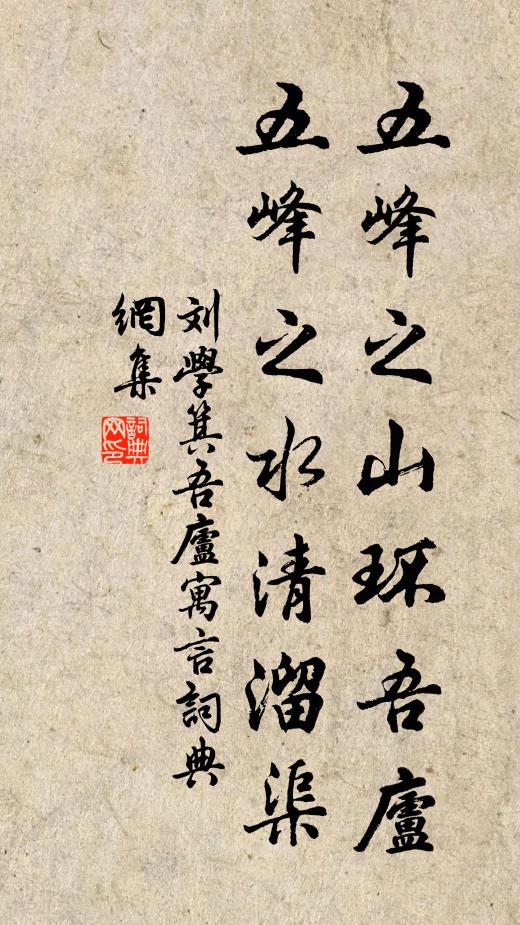 五峰之山环吾廬
五峰之水清溜渠
刘學箕吾廬寓言詞典
網集
詞典網印